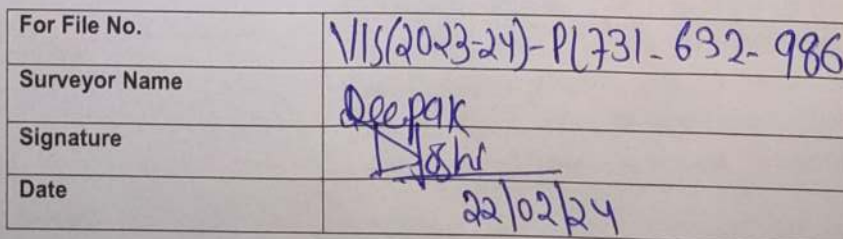 For File No. VIS(2023-24)-PL731-692-986
Surveyor Name Deepak
Signature Joshi
Date 22/02/24